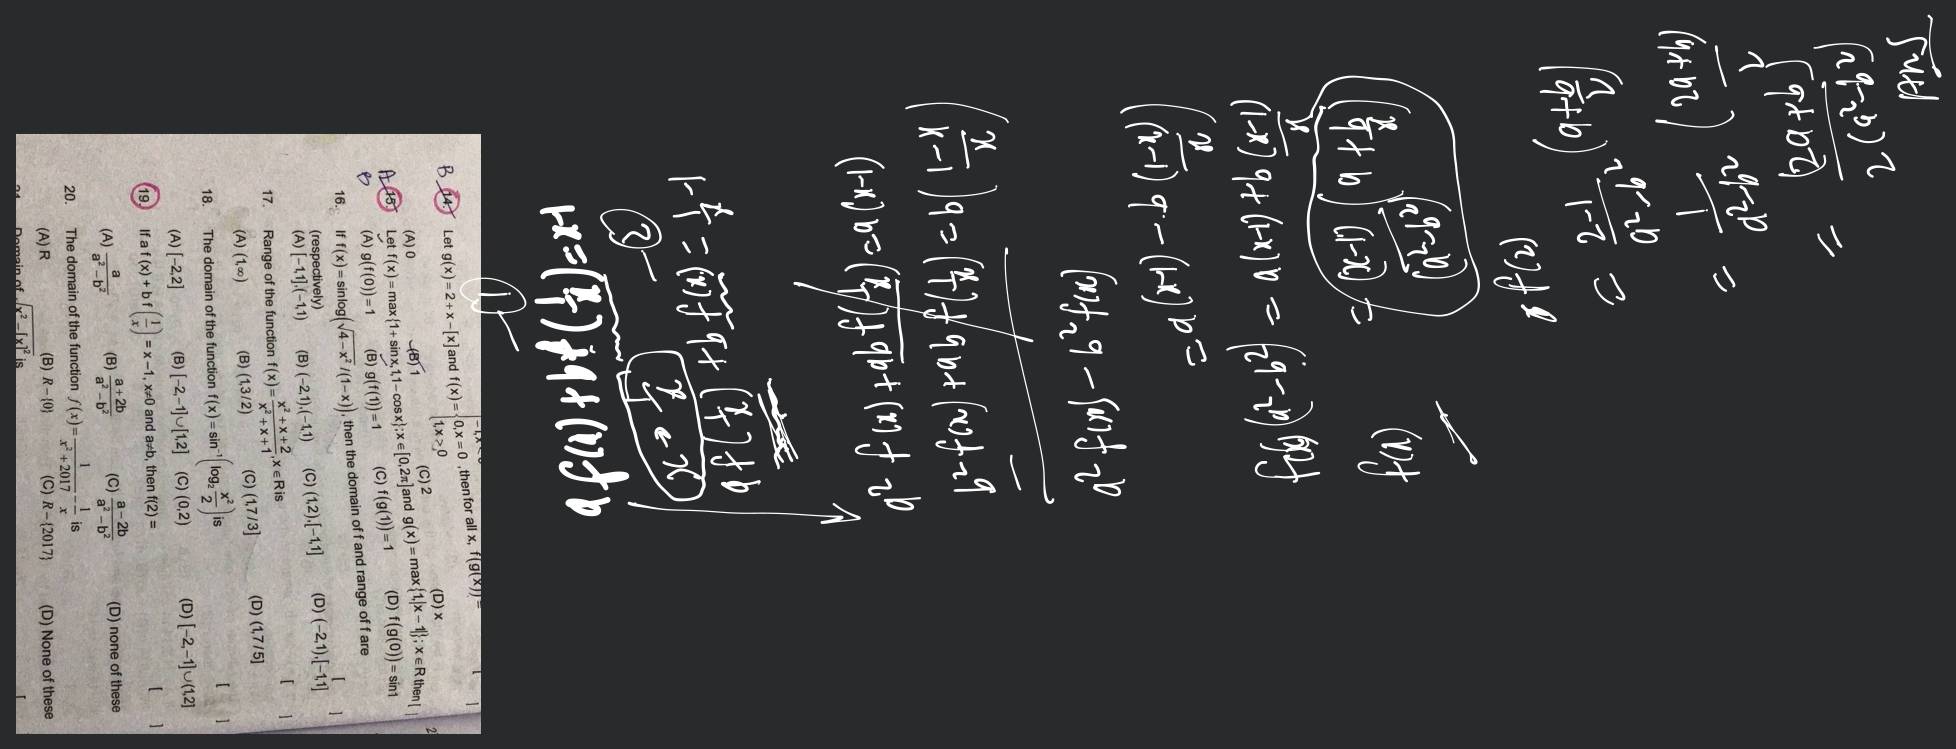 -1, x < 0
Let g(x) = 2 + x - [x] and f(x) = { 0, x = 0 , then for all x, f(g(x)) =
1, x > 0
B 14.
(A) 0 (B) 1 (C) 2 (D) x
A 15. Let f(x) = max{1 + sin x, 1, 1 - cos x}; x ∈ [0, 2π] and g(x) = max{1, |x - 1|}; x ∈ R then [ ]
B
(A) g(f(0)) = 1 (B) g(f(1)) = 1 (C) f(g(1)) = 1 (D) f(g(0)) = sin1
16. If f(x) = sinlog(√4-x² / (1-x)), then the domain of f and range of f are
(respectively) [ ]
(A) [-1,1], (-1,1) (B) (-2,1), (-1,1) (C) (1,2), [-1,1] (D) (-2,1), [-1,1]
17. Range of the function f(x) = x² + x + 2 / x² + x + 1 , x ∈ R is [ ]
(A) (1,∞) (B) (1,3/2) (C) (1,7/3] (D) (1,7/5]
18. The domain of the function f(x) = sin⁻¹(log₂ x²/2) is [ ]
(A) [-2,2] (B) [-2,-1]∪[1,2] (C) (0,2) (D) [-2,-1]∪(1,2]
19. If a f(x) + b f(1/x) = x - 1, x≠0 and a≠b, then f(2) = [ ]
(A) a / a² - b² (B) a + 2b / a² - b² (C) a - 2b / a² - b² (D) none of these
20. The domain of the function f(x) = 1 / x² + 2017 - 1/x is
(A) R (B) R - {0} (C) R - {2017} (D) None of these
Domain of √x² - [x]² is
a f(x) + b f(1/x) = x-1 ①
x → 1/x
a f(1/x) + b f(x) = 1/x - 1 ②
a² f(x) + ab f(1/x) = a(x-1)
b² f(x) + ab f(1/x) = b(1-x / x)
a² f(x) - b² f(x)
= a(x-1) - b(1-x / x)
f(x)(a²-b²) = a(x-1) + b(x-1) / x
f(x) = (x-1)(a + b/x) / (a²-b²)
f(2)
= 2-1 / a²-b² (a + b/2)
= 1 / a²-b² (2a+b / 2)
= (2a+b) / 2(a²-b²) Ans